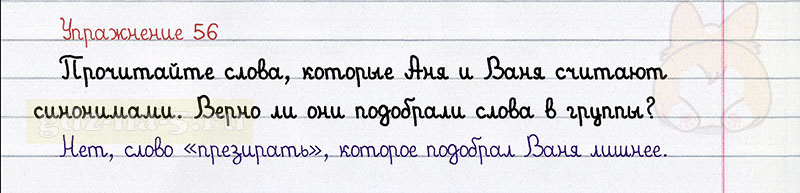 Упражнение 56
Прочитайте слова, которые Аня и Ваня считают
синонимами. Верно ли они подобрали слова в группы?
Нет, слово «презирать», которое подобрал Ваня лишнее.